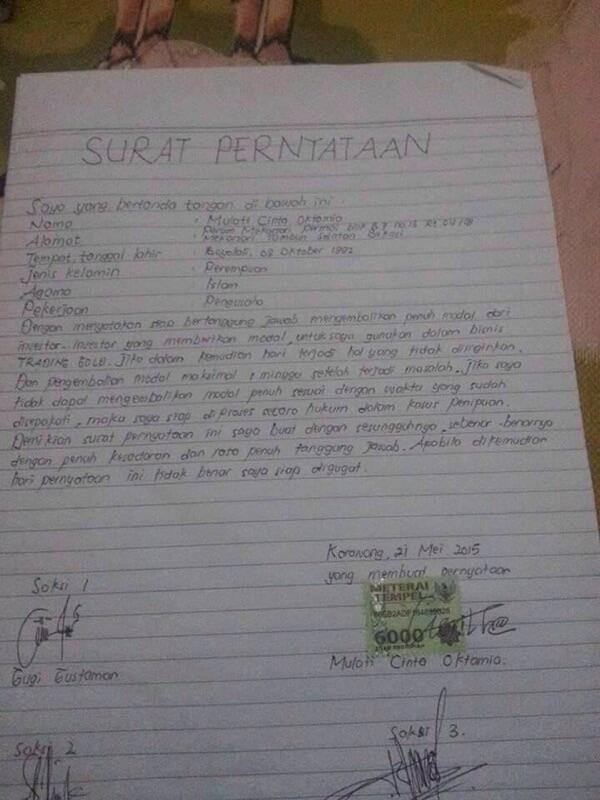 SURAT PERNTATAAN
Saya yang bertanda tangan di bawah ini :
Nama : Mulati Cinta Oktamia
Alamat : Perum Mekarsari Permai Blok B.7 no.15 Rt 04/08
Mekarsari Tambun Selatan Bekasi
Tempat, tanggal lahir : Boyolali, 03 Oktober 1992
Jenis kelamin : Perempuan
Agama : Islam
Pekerjaan : Pengusaha
Dengan menyatakan siap bertanggung jawab mengembalikan penuh modal dari
investor-investor yang memberikan modal, untuk saya gunakan dalam bisnis
TRADING GOLD. Jika dalam kemudian hari terjadi hal yang tidak diinginkan.
Dan pengembalian modal maksimal 1 minggu setelah terjadi masalah. Jika saya
tidak dapat mengembalikan modal penuh sesuai dengan waktu yang sudah
disepakati, maka saya siap di proses secara hukum dalam kasus penipuan.
Demikian surat pernyataan ini saya buat dengan sesungguhnya, sebenar-benarnya
dengan penuh kesadaran dan rasa penuh tanggung jawab. Apabila dikemudian
hari pernyataan ini tidak benar saya siap digugat.
Karawang, 21 Mei 2015
yang membuat pernyataan
METERAI
TEMPEL
6000
Mulati Cinta Oktamia.
Saksi 1
Gugi Gustaman
Saksi 2
Saksi 3.